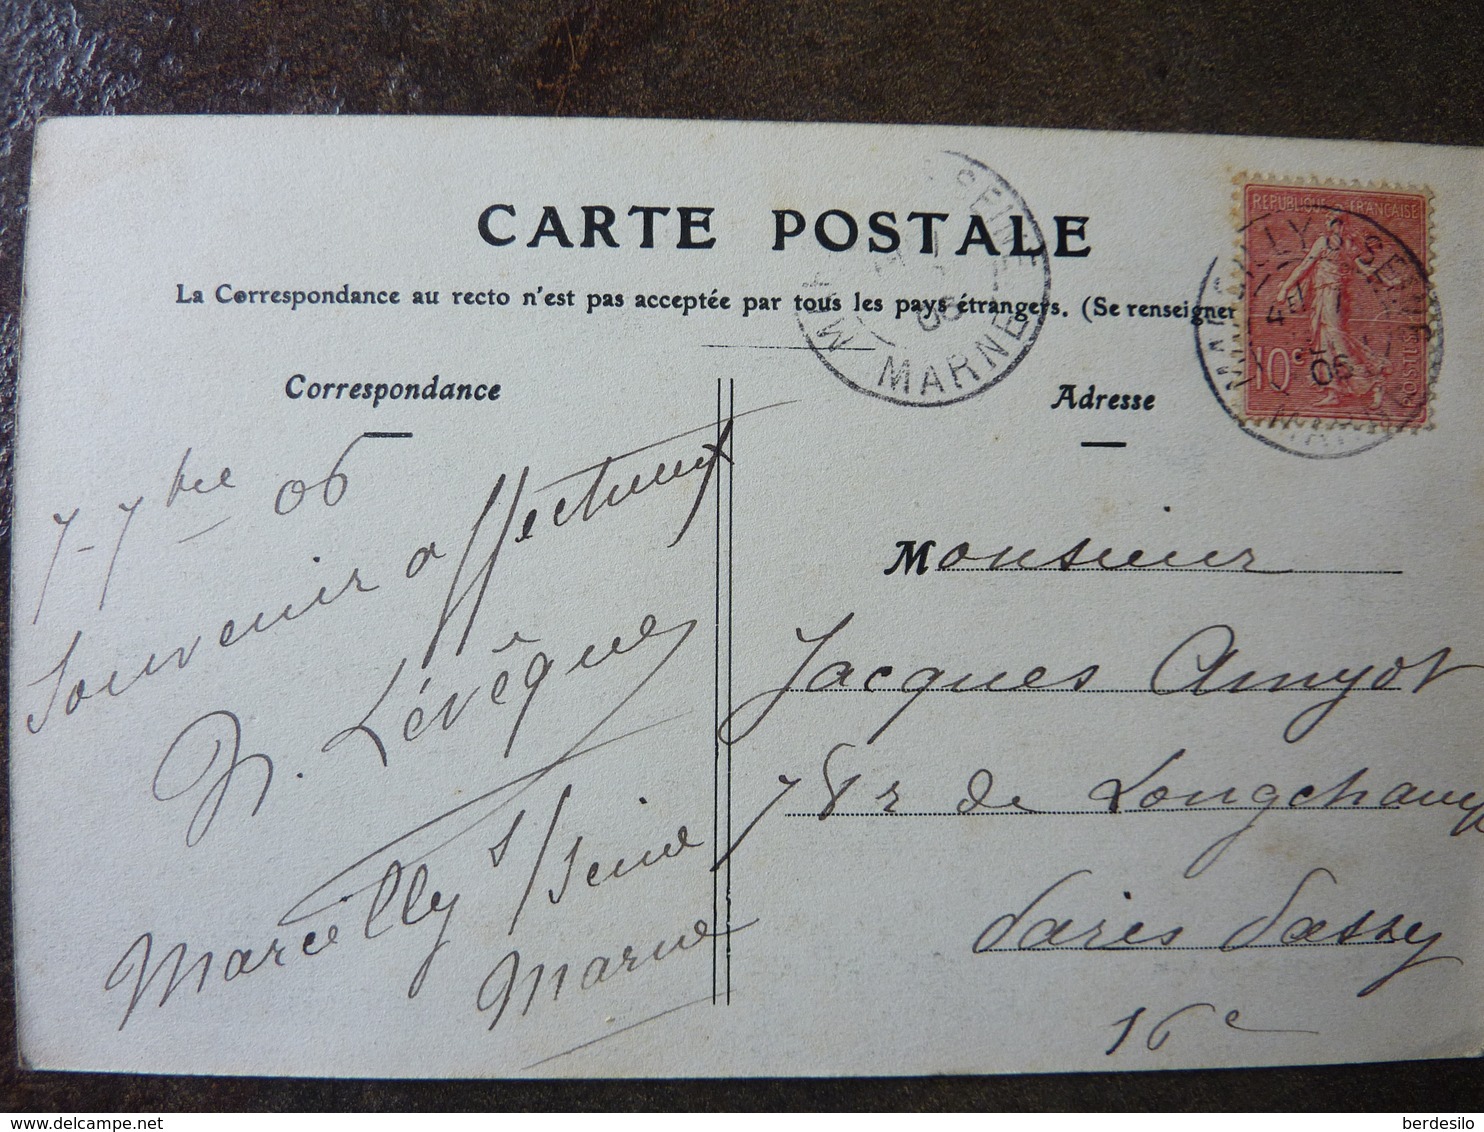 CARTE POSTALE
La Correspondance au recto n'est pas acceptée par tous les pays étrangers. (Se renseigner
Correspondance
Adresse
7-7bre 06
Souvenir affectueux
Lévêque
Marcilly s/Seine
Marne
Monsieur
Jacques Amyot
78 r de Longchamp
Paris Passy
16e
REPUBLIQUE FRANÇAISE
10c
POSTES
MARCILLY S SEINE
06
MARNE
SEINE
06
MARNE
berdesilo